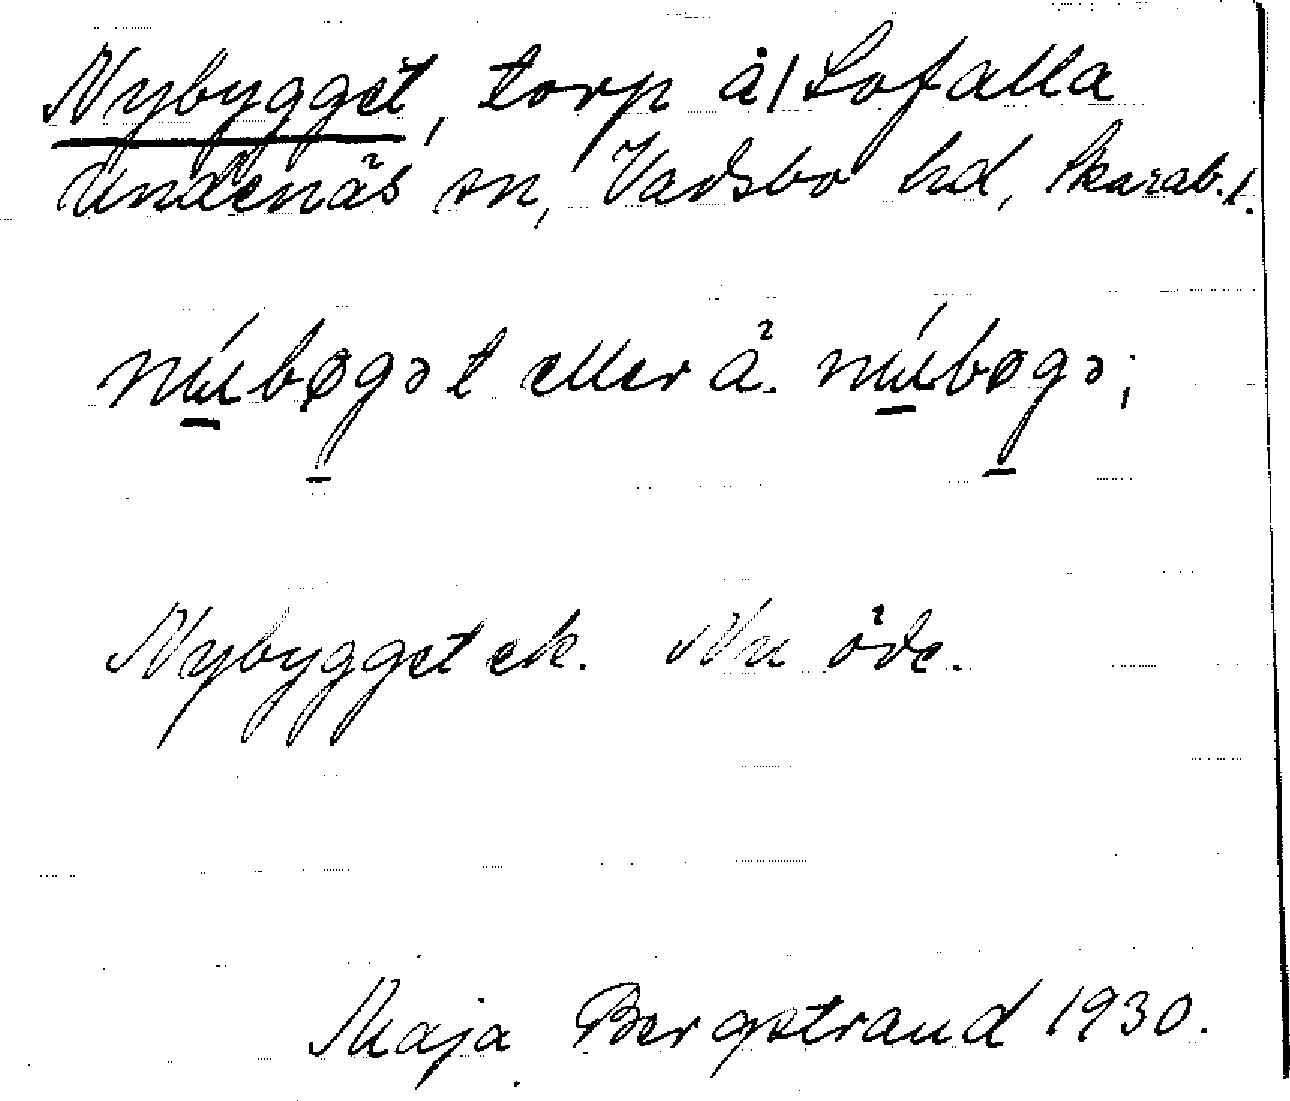 Nybygget, torp å/ Sofalla
Undenäs sn, Vadsbo hd, Skarab. l.
núbøgət eller å. núbøgə;
Nybygget ek. Nu öde.
Maja Bergstrand 1930.